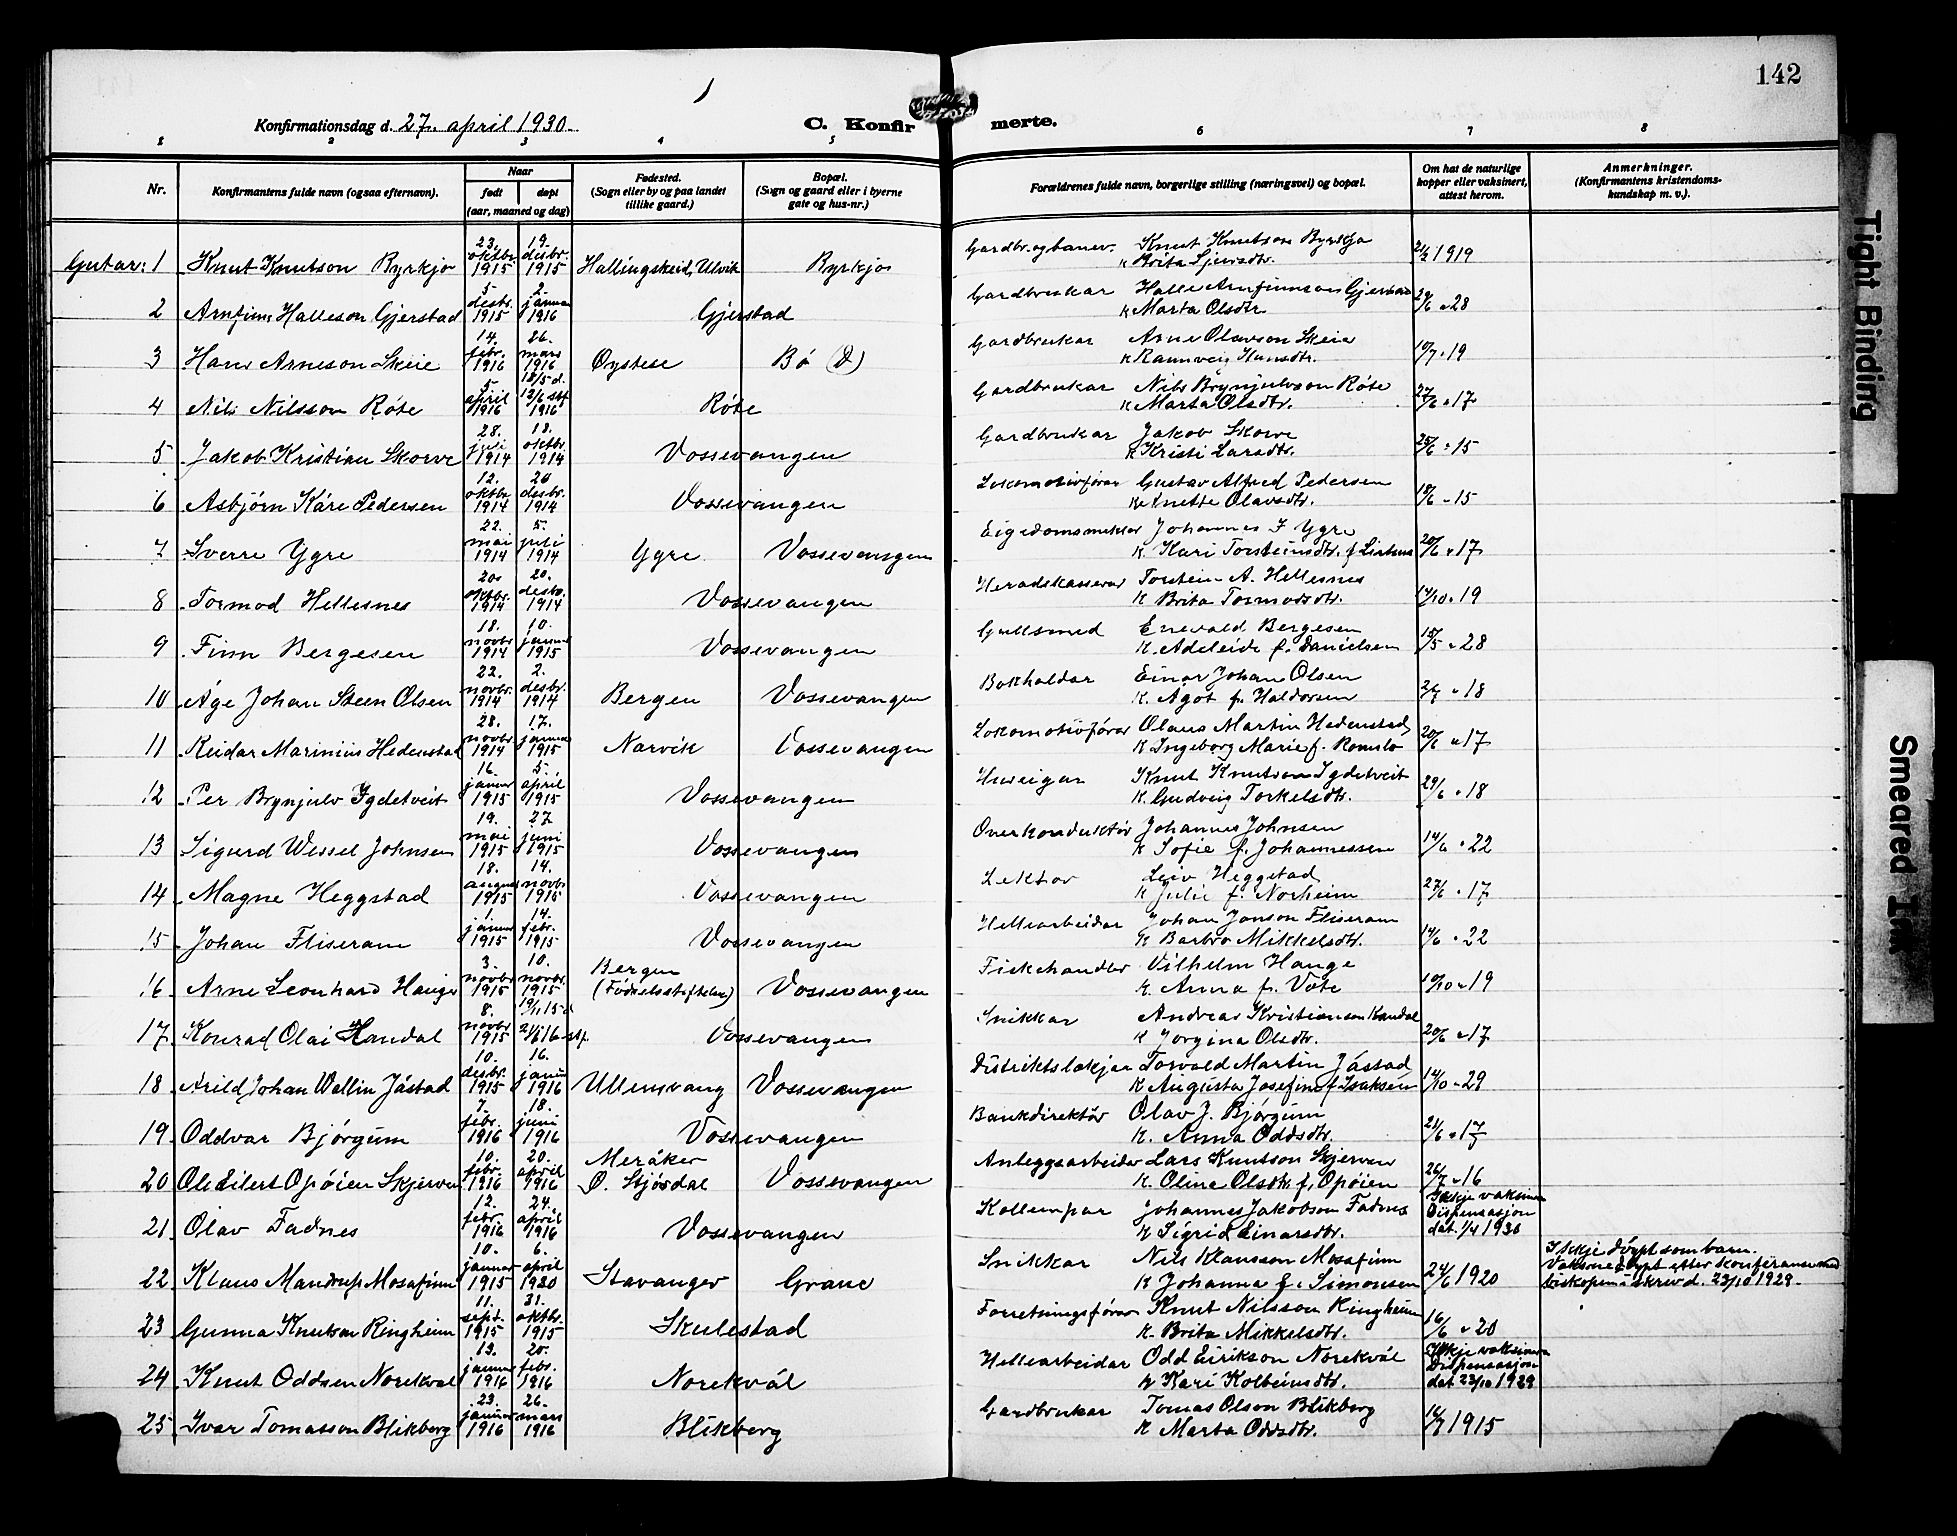 142
Konfirmationsdag d. 27. april 1930.
C. Konfirmerte.
1 2 3 4 5 6 7 8
Nr.
Konfirmantens fulde navn (ogsaa efternavn).
Naar
født
døpt
(aar, maaned og dag)
Fødested.
(Sogn eller by og paa landet
tillike gaard.)
Bopæl.
(Sogn og gaard eller i byerne
gate og hus-nr.)
Forældrenes fulde navn, borgerlige stilling (næringsvei) og bopæl.
Om hat de naturlige
kopper eller vaksinert,
attest herom.
Anmerkninger.
(Konfirmantens kristendoms-
kundskap m. v.).
Gutar: 1 Knut Knutson Byrkjo 23. oktbr. 1915 19. desbr. 1915 Hallingskeid, Ulvik Byrkjo Gardbr. og banev. Knut Knutson Byrkjo K Brita Sjursdtr. 1919
2 Arnfinn Halleson Gjerstad 5. desbr. 1915 2. januar 1916 Gjerstad Gardbrukar Halle Arnfinnson Gjerstad K Marta Olsdtr. 28
3 Hans Arneson Skeie 14. febr. 1916 26. mars 1916 Øystese Bø Gardbrukar Arne Olavson Skeie K Rannveig Hansdtr. 10/7 19
4 Nils Nilsson Røte 5. april 1916 18/5 d. 12/6 stf. 1916 Røte Gardbrukar Nils Brynjulvson Røte K Marta Olsdtr. 27/6 17
5 Jakob Kristian Skorve 28. juli 1914 18. oktbr. 1914 Vossevangen Gardbrukar Jakob Skorve K Kristi Larsdtr. 25/6 15
6 Asbjørn Kåre Pedersen 12. oktbr. 1914 26 desbr. 1914 Vossevangen Lokomotivførar Gustav Alfred Pedersen K Anette Olavsdtr. 18/6 15
7 Sverre Ygre 22. mai 1914 5. juli 1914 Ygre Vossevangen Eigedomsmeklar Johannes I Ygre K. Kari Torsteinsdtr. f. 20/6 17
8 Tormod Hellesnes 20. oktbr. 1914 20. desbr. 1914 Vossevangen Heradskasserar Torstein A. Hellesnes K Brita Tormodsdtr. 14/10 19
9 Finn Bergesen 18. novbr 1914 10. januar 1915 Vossevangen Gullsmed Enevald Bergesen K. Adeleide f. Danielsen 15/5 28
10 Åge Johan Steen Olsen 22. novbr. 1914 2. desbr. 1914 Bergen Vossevangen Bokhaldar Einar Johan Olsen K. Agot f. Haldorsen 18
11 Reidar Marinius Hedenstad 28. novbr 1914 17. januar 1915 Narvik Vossevangen Lokomotivførar Olaus Martin Hedenstad K Ingeborg Marie f. Romslo 20/6 17
12 Per Brynjulv Ygdetveit 16. januar 1915 5. april 1915 Vossevangen Huseigar Knut Knutson Ygdetveit K. Gudveig Torkelsdtr. 29/6 18
13 Sigurd Wessel Johnsen 19. mai 1915 27 juni 1915 Vossevangen Overkonduktør Johannes Johnsen K Sofie f. Johannessen 14/6 22
14 Magne Heggstad 18. august 1915 14. novbr 1915 Vossevangen Lektor Leiv Heggstad K Julie f. Norheim 27/6 17
15 Johan Fliseram 1. januar 1915 14. febr. 1915 Vossevangen Hellearbeidar Johan Jonson Fliseram K Barbro Mikkelsdtr. 14/6 22
16 Arne Leonhard Hauge 3. novbr 1915 10. novbr. 1915 Bergen (Fødselsstiftelsen) Vossevangen Fiskehandler Vilhelm Hauge K. Anna f. Vøte 10/10 19
17 Konrad Olai Handal 8. novbr 1915 19/11 15 d. 2/1 16 stf. Vossevangen Snikkar Andreas Kristianson Handal K Jorgina Olsdtr. 20/6 17
18 Arild Johan Wellin Jåstad 10. desbr. 1915 16. januar 1916 Ullensvang Vossevangen Distriktslækjar Torvald Martin Jåstad K Augusta Josefine f. Isaksen 14/10 29
19 Oddvar Bjørgum 7. febr. 1916 18. juni 1916 Vossevangen Bankdirektør Olav J. Bjørgum K. Anna Oddsdtr. 21/6 17
20 Ole Eilert Opøien Skjerven 10. febr. 1916 20. april 1916 Meråker Ø. Stjørdal Vossevangen Anleggsarbeider Lars Knutson Skjerven K. Olina Olsdtr. f. Opøien 26/7 16
21 Olav Fadnes 12. febr. 1916 24. april 1916 Vossevangen Johannes Jakobson Fadnes K Sigrid Einarsdtr. Ikkje vaksinera Dispensasjon dat. 1/4 1930
22 Klaus Mandrup Mosafinn 10. januar 1915 6. april 1930 Stavanger Grane Snikkar Nils Klausson Mosafinn K Johanna f. Simonsen 24/6 1920 Ikkje døypt som barn. Vaksne døypt etter konferanse med biskopens skriv d. 23/10 1929.
23 Gunna Knutson Ringheim 11. sept. 1915 31. oktbr. 1915 Skulestad Forretningsførar Knut Nilsson Ringheim K. Brita Mikkelsdtr. 16/6 20
24 Knut Oddsen Norekvål 13. januar 1916 20. febr. 1916 Norekvål Hellearbeidar Odd Eirikson Norekvål K Kari Kolbeinsdtr. Ikkje vaksinera Dispensasjon dat. 23/10 1929
25 Ivar Tomasson Blikberg 23. januar 1916 26. mars 1916 Blikberg Gardbrukar Tomas Olson Blikberg K Marta Oddsdtr. 1915
Tight Binding
Smeared Ink